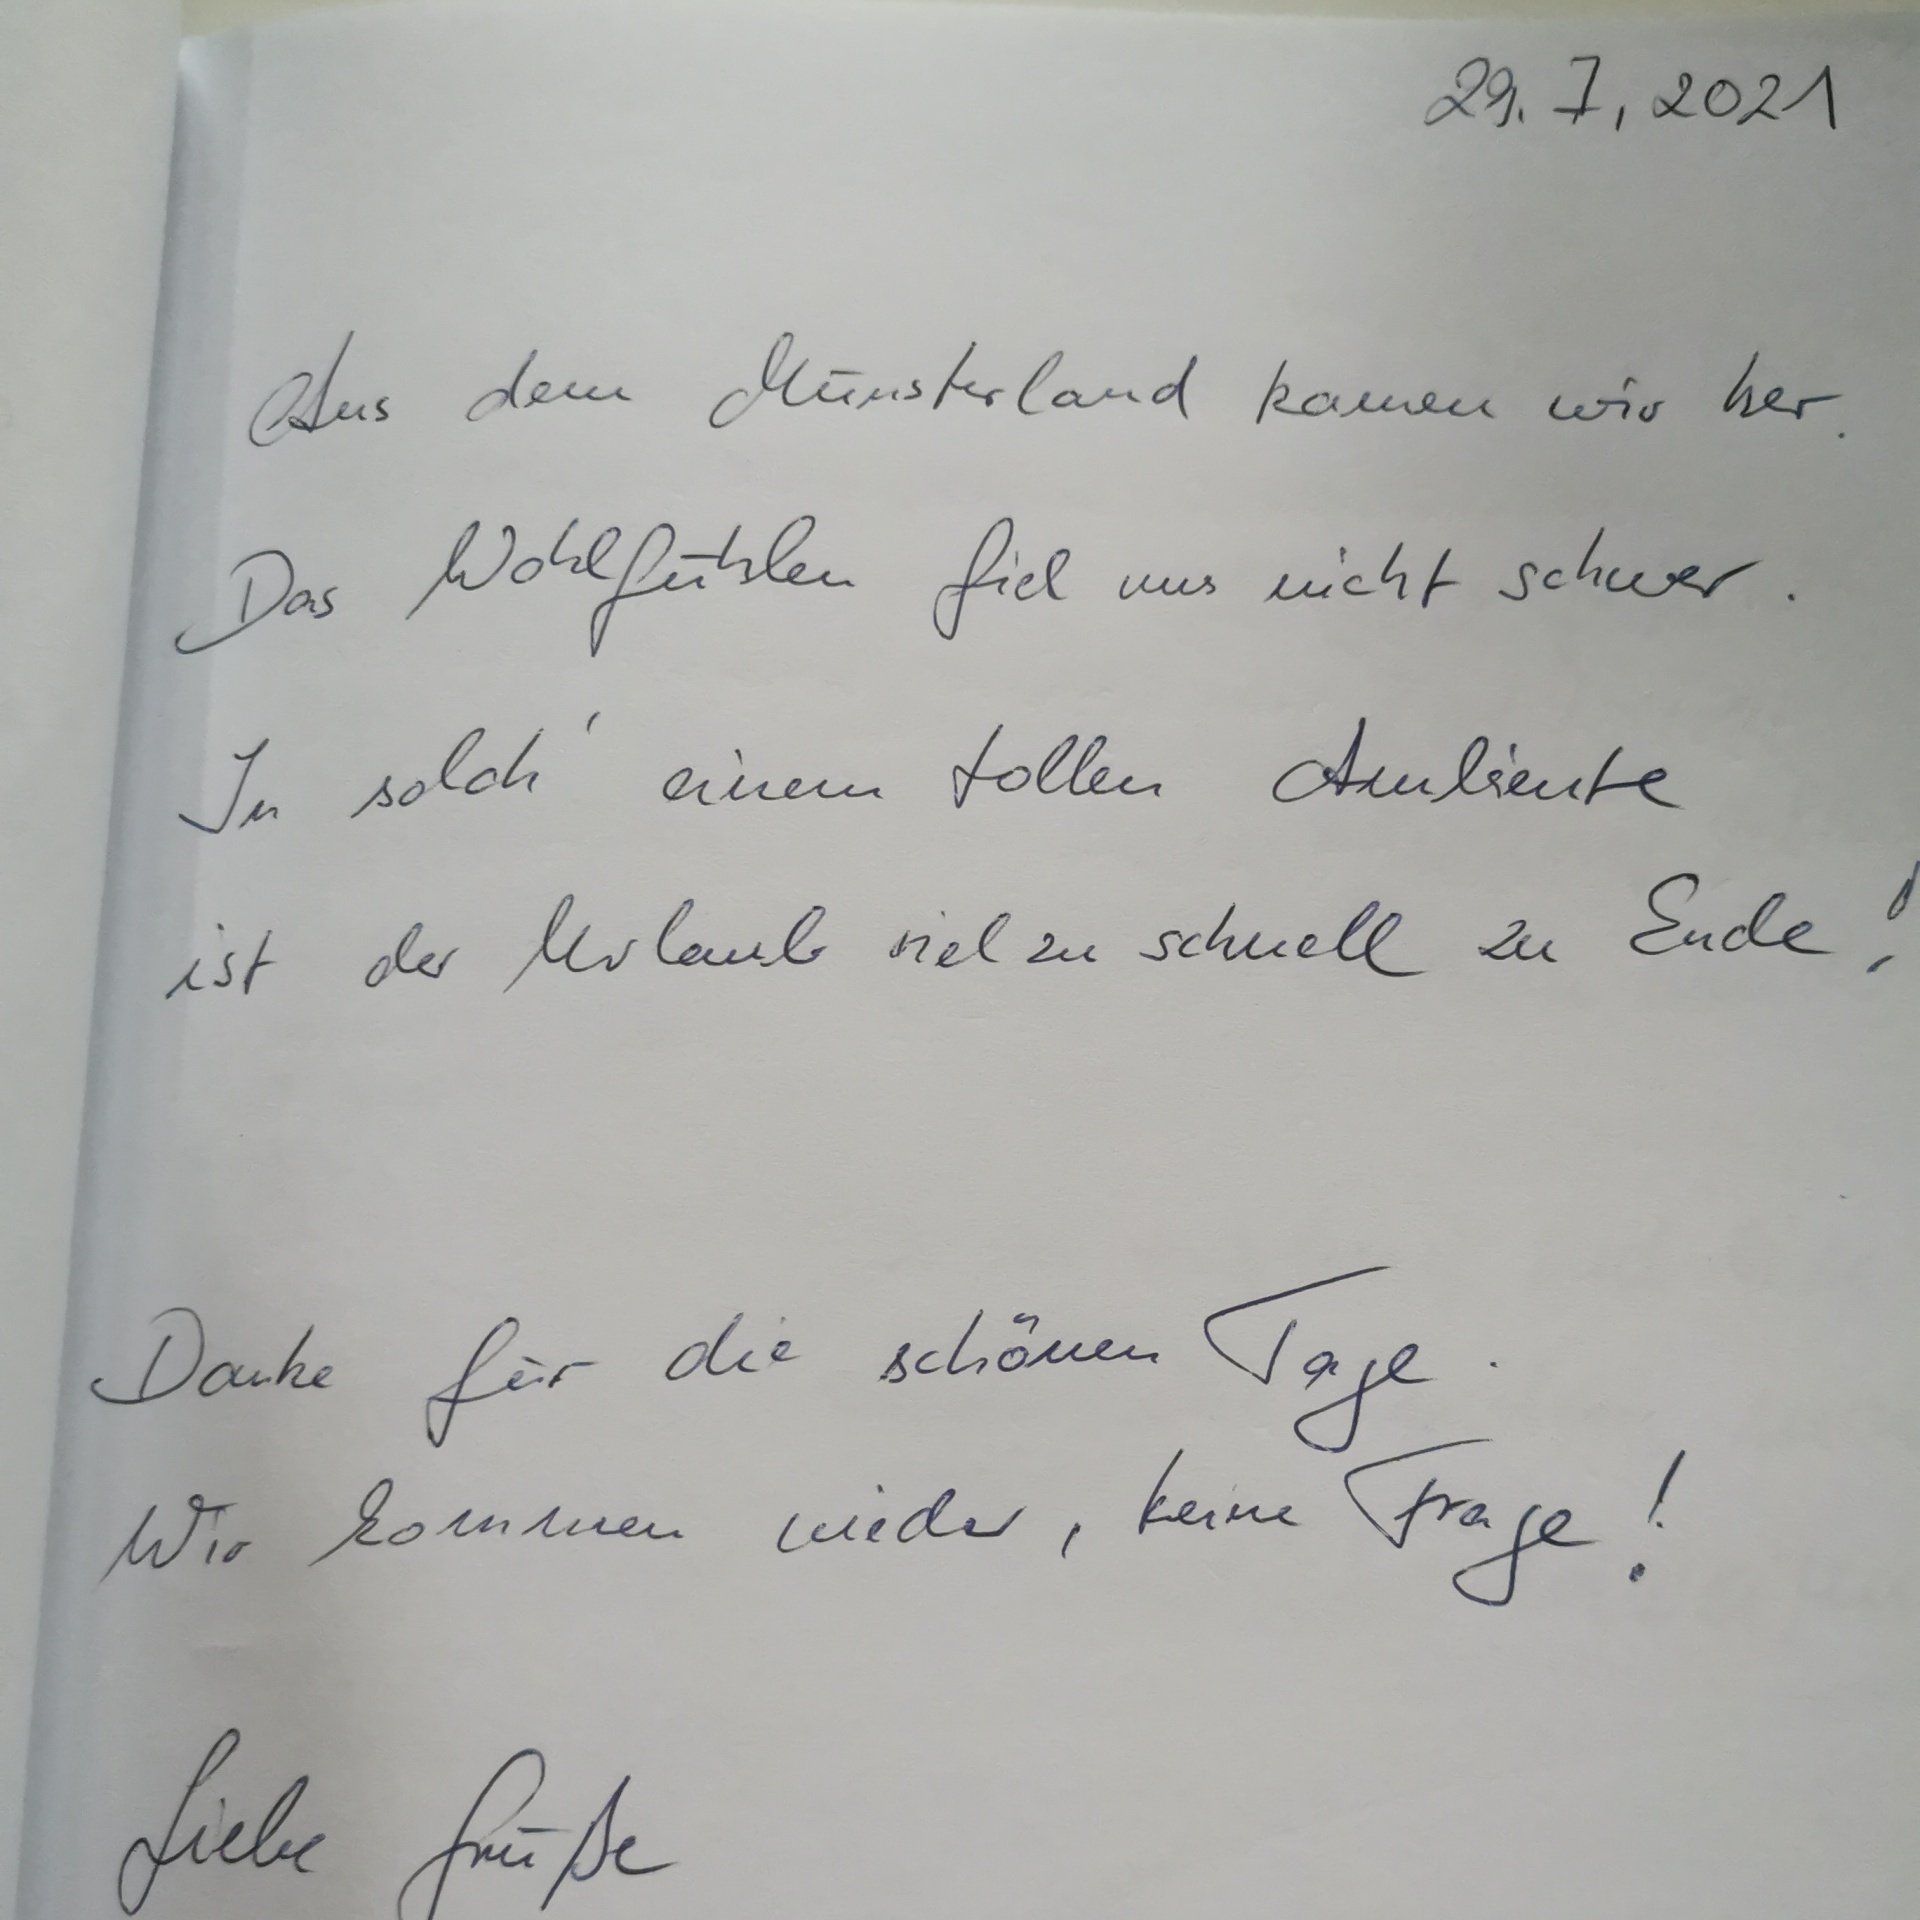 29.7.2021
Aus dem Münsterland kamen wir her.
Das Wohlfühlen fiel uns nicht schwer.
In solch' einem tollen Ambiente
ist der Urlaub viel zu schnell zu Ende!
Danke für die schönen Tage.
Wir kommen wieder, keine Frage!
Liebe Grüße